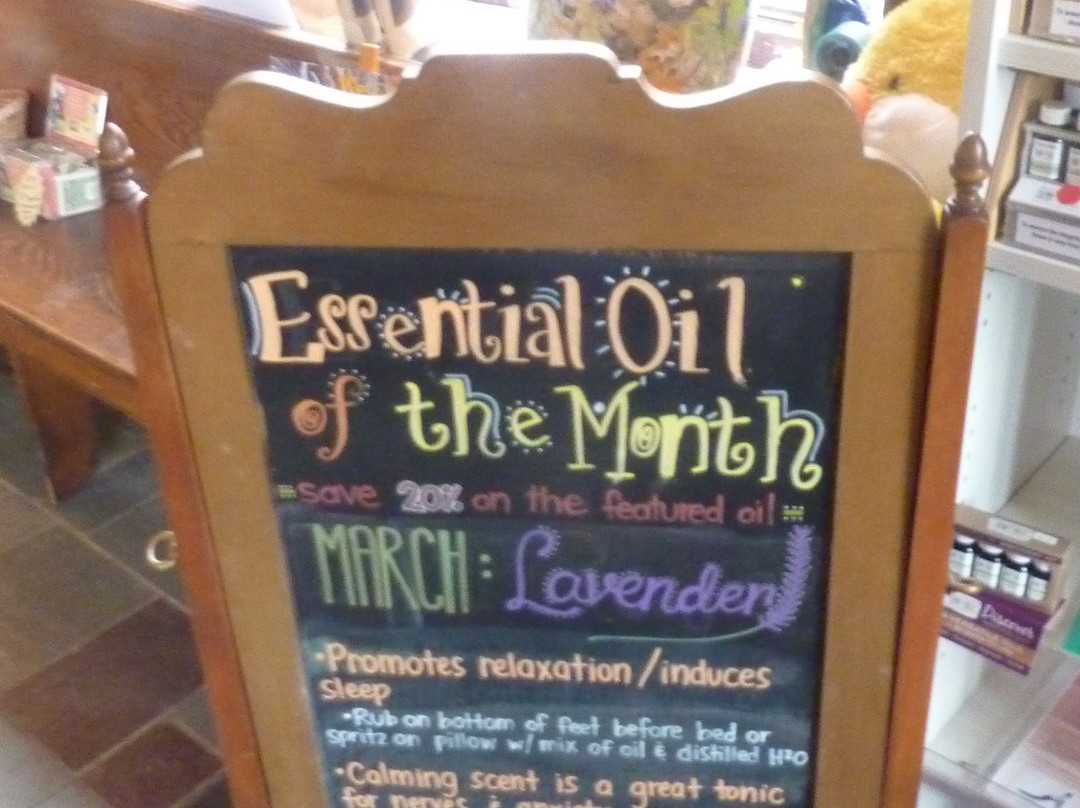 Essential Oil
of the Month
save 20% on the featured oil
MARCH: Lavender
•Promotes relaxation/induces
sleep
•Rub on bottom of feet before bed or
spritz on pillow w/ mix of oil & distilled H2O
•Calming scent is a great tonic
for nerves & anxiety
Discover